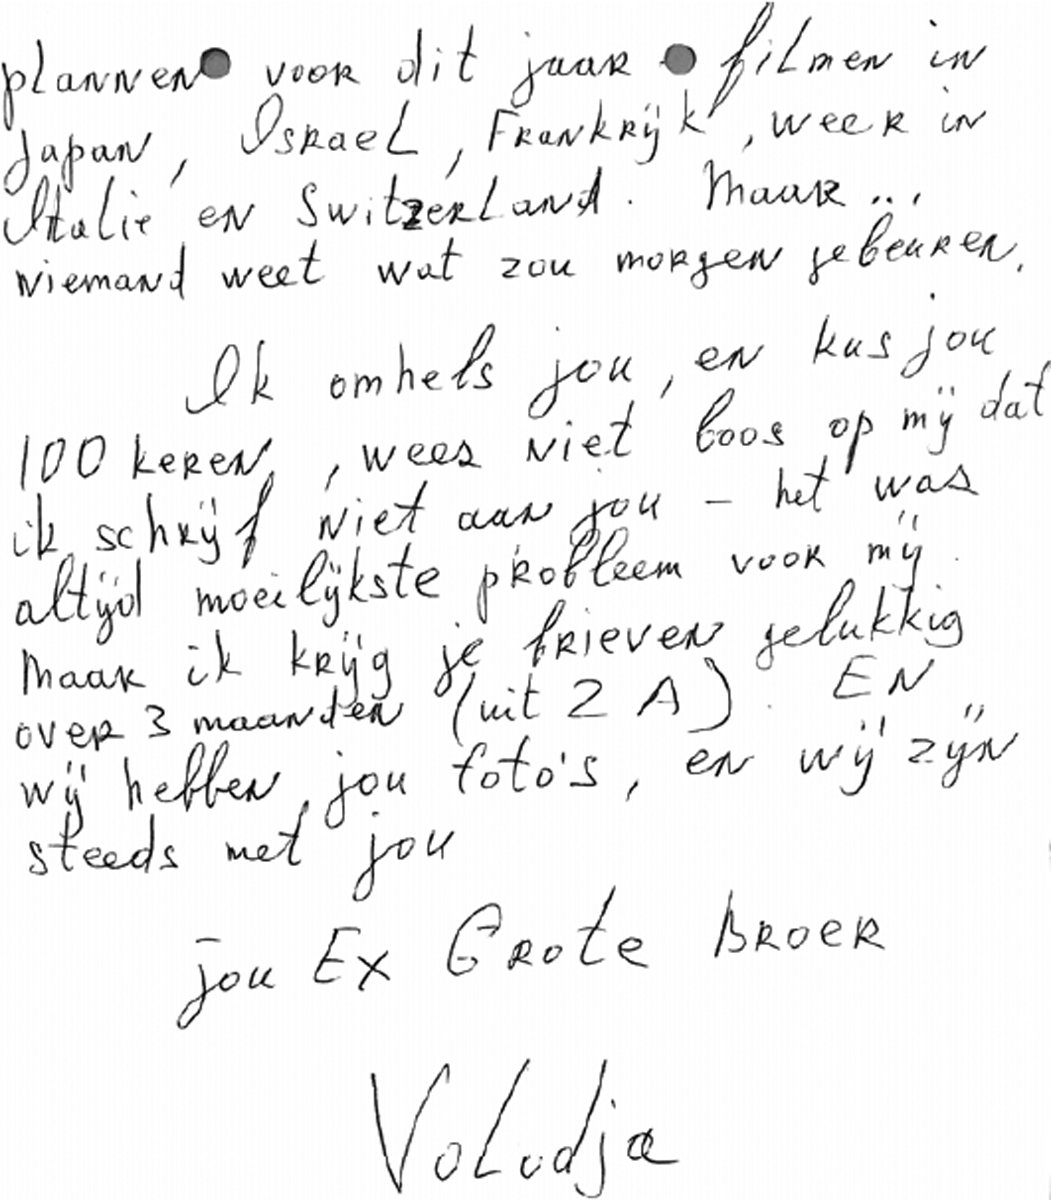 plannen voor dit jaar - filmen in
Japan, Israel, Frankrijk, weer in
Italie en Switzerland. Maar...
niemand weet wat zou morgen gebeuren.
Ik omhels jou, en kus jou
100 keren, wees niet boos op mij dat
ik schrijf niet aan jou – het was
altijd moeilijkste probleem voor mij.
Maar ik krijg je brieven gelukkig
over 3 maanden (uit Z A). EN
wij hebben jou foto's, en wij zijn
steeds met jou
jou Ex Grote Broer
Volodja